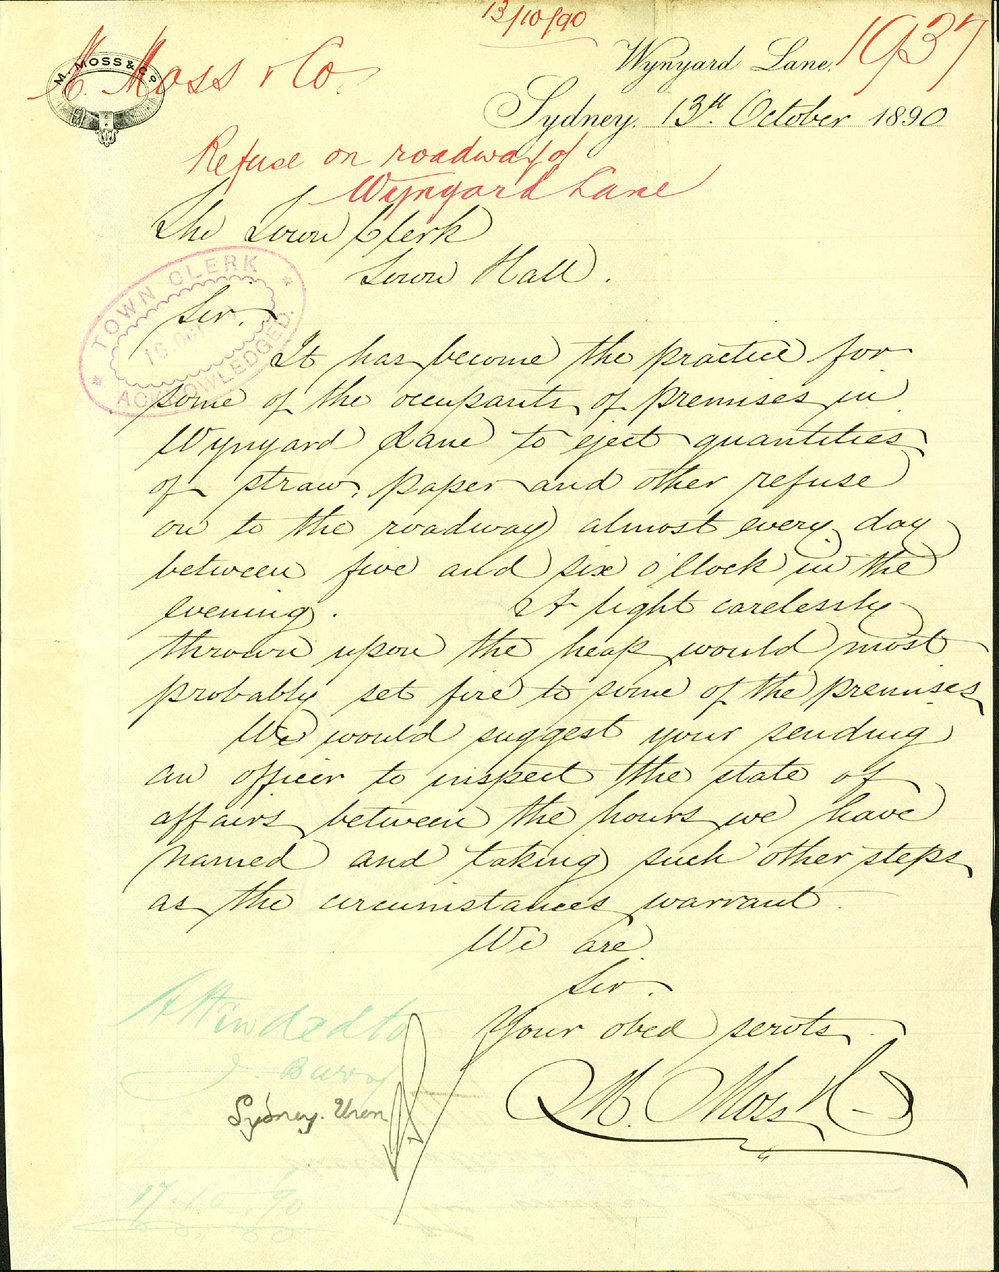 13/10/90
1937
M. Moss & Co.
M. MOSS & Co
Wynyard Lane,
Sydney, 13th October 1890
Refuse on roadway of
Wynyard Lane
The Town Clerk
Town Hall.
TOWN CLERK
16 OCT
ACKNOWLEDGED.
Sir,
It has become the practice for
some of the occupants of premises in
Wynyard Lane to eject quantities
of straw, paper and other refuse
on to the roadway almost every day
between five and six o'clock in the
evening. A light carelessly
thrown upon the heap would most
probably set fire to some of the premises
We would suggest your sending
an officer to inspect the state of
affairs between the hours we have
named and taking such other steps
as the circumstances warrant.
We are
Sir.
Your obed servts
M. Moss & Co
Attended to
Sydney. Uren
17.10.90